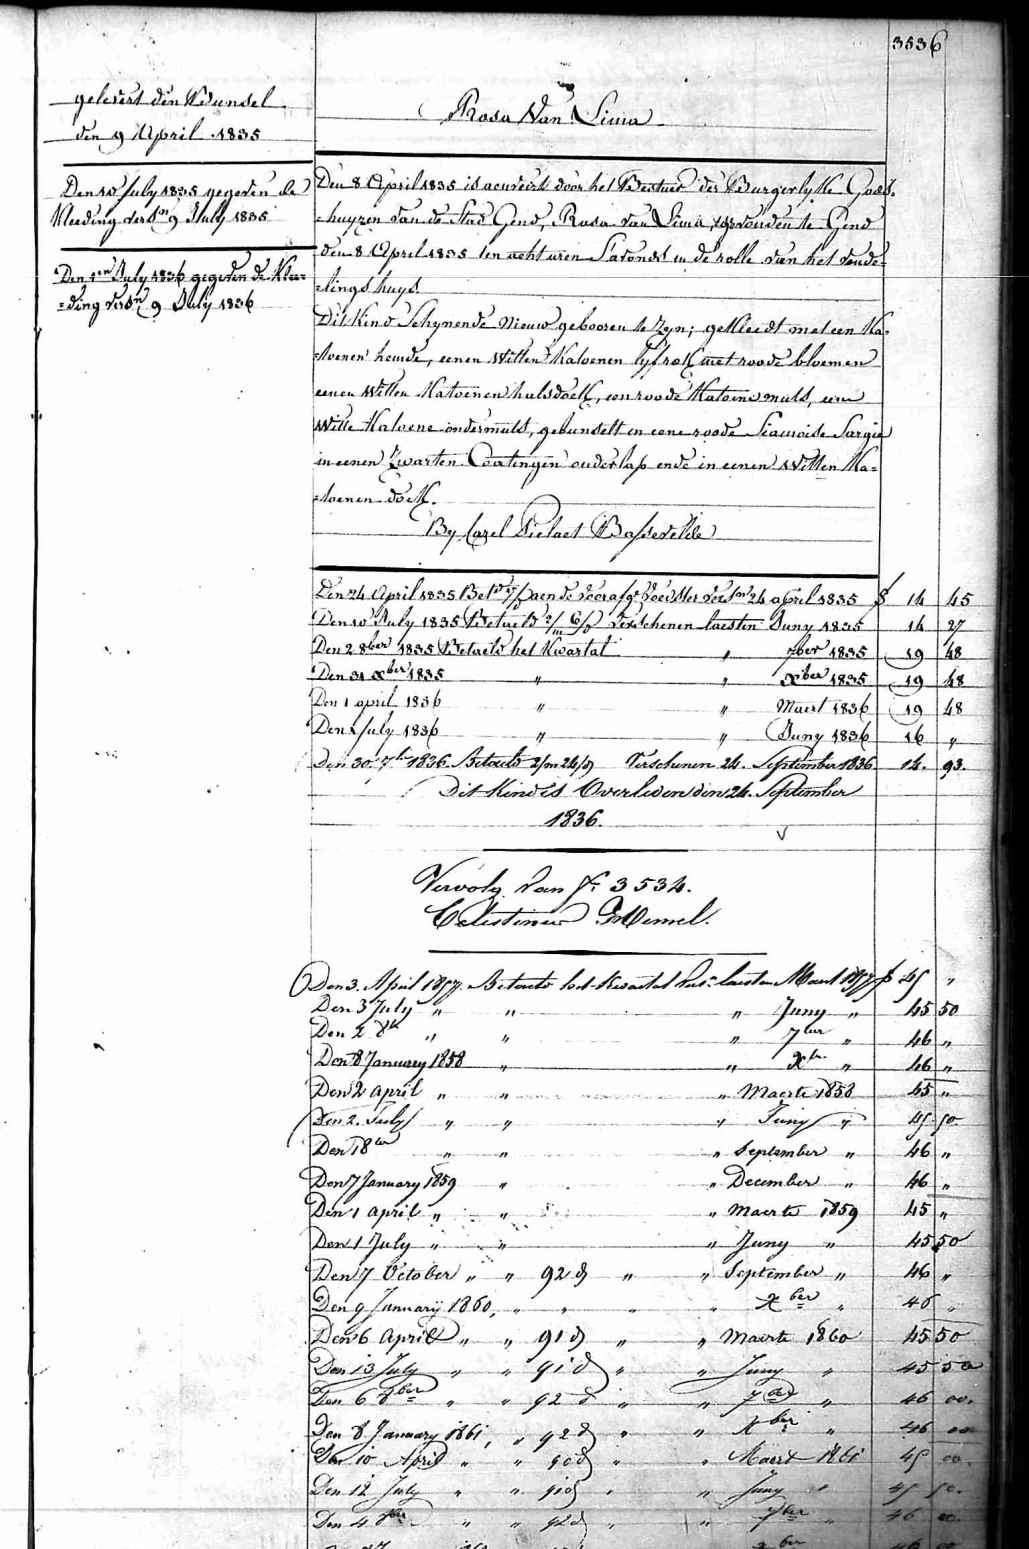 3536
gelevert den Wdunsel
den 9 April 1835
Den 10 July 1835 gegeven de
Kleeding versn 9 July 1835
Den 1en July 1836 gegeven de Klee-
=ding versn 9 July 1836
Rosa Van Lima
Den 8 April 1835 is door het Bestuer der Burgerlyke Gods-
-huyzen van de Stad Gend, Rosa van Lima, gevonden te Gend
den 8 April 1835 ten acht uren S'avonds in de rolle van het vonde-
-lings huys
Dit Kind Schynende Nieuw gebooren te Zyn; gekleedt met een Ka-
-toenen hemde, eenen Witten Katoenen lyfrok met roode bloemen
eenen Witten Katoenen halsdoek, een roode Katoene muts, eene
Witte Katoene ondermuts, gebunselt in eene roode Siamoise Sargie
in eenen Zwarten Coatingen ouderlap ende in eenen Witten Ka-
-toenen doek.
By Carel Pielaet Bassevelde
Den 24 April 1835 aen de Voedster versn 24 april 1835 $ 14 45
Den 10 July 1835 Betaelt 2/m 6/d Verschenen laesten Juny 1835 14 27
Den 2 8ber 1835 Betaelt het Kwartal " 7ber 1835 19 48
Den 31 xber 1835 " " xber 1835 19 48
Den 1 april 1836 " " Maert 1836 19 48
Den 1 July 1836 " " Juny 1836 16 "
Den 30. 7b 1836. Betaelt 2/m 24/d Verschenen 24. September 1836 14. 93.
Dit Kind is Overleden den 24. September
1836.
Vervolg van f. 3534.
Celestinus
Den 3. April 1857. Betaelt het Kwartal Vers: laesten Maert 1857 $ 45 "
Den 3 July " " " Juny " 45 50
Den 2 8b " " " 7ber " 46 "
Den 8 January 1858 " " xbr. " 46 "
Den 2 april " " " Maerte 1858 45 "
Den 2. July " " " Juny " 45 50.
Den 1 8ber " " " September " 46 "
Den 7 January 1859 " " December " 46 "
Den 1 april " " " Maerte 1859 45 "
Den 1 July " " " Juny " 45 50
Den 7 October " " 92 d " " September " 46 "
Den 9 January 1860, " " " " xber " 46 "
Den 6 April " " 91 d " " Maerte 1860 45 50
Den 13 July " " 91 d " " Juny " 45 50
Den 6 8ber " " 92 d " " 7ber " 46 00.
Den 8 January 1861, " 92 d " " xber " 46 00
Den 10 April " " 90 d " " Maert 1861 45 00.
Den 12 July " " 91 d " " Juny " 45 50.
Den 4 8ber " " 92 d " " 7ber " 46 00.